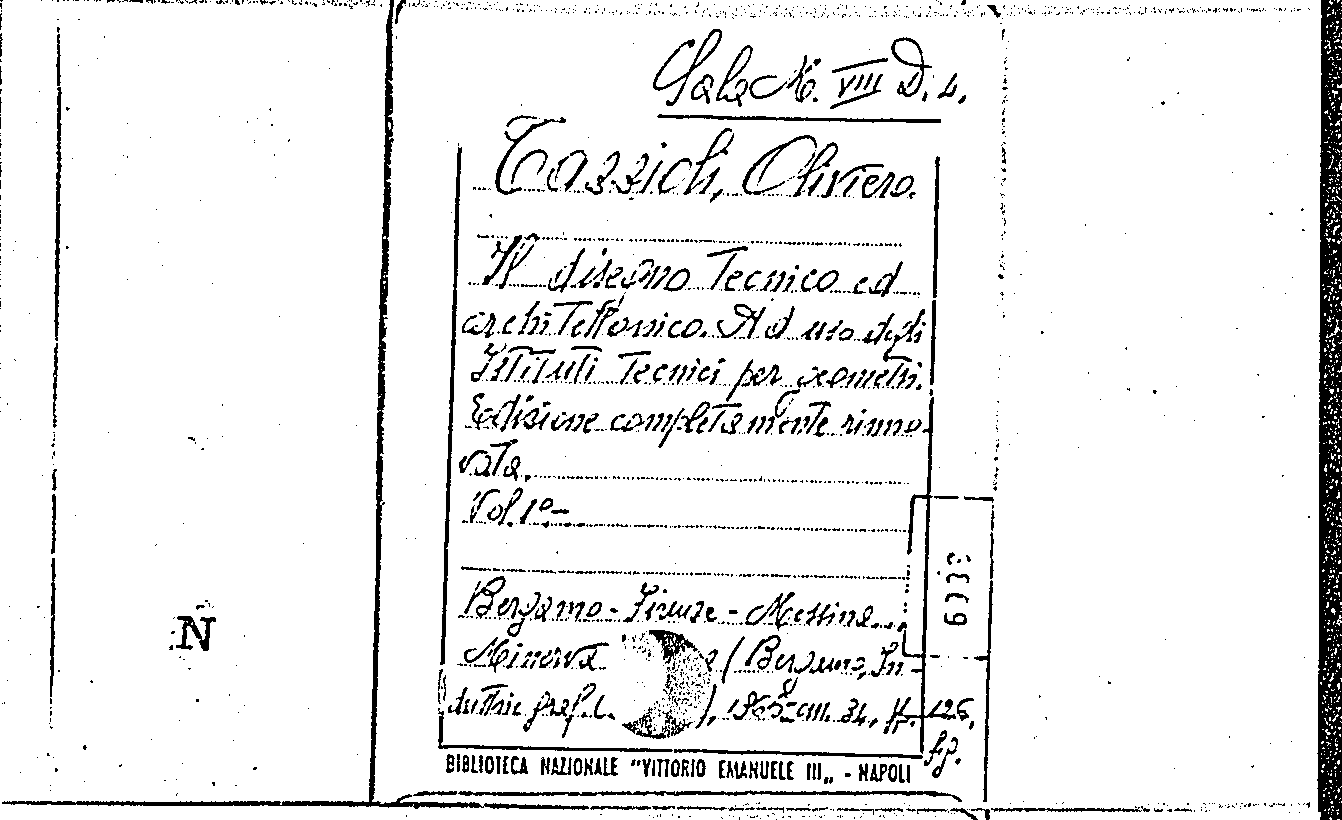 Sala M. VIII D. 4.
Tazzioli, Oliviero.
Il disegno Tecnico ed
architettonico. Ad uso degli
Istituti Tecnici per geometri.
Edizione completamente rinno-
vata.
Vol. 1º-
Bergamo - Firenze - Messina,
Minerva ( Bergamo, In-
dustrie graf. ), 1965 cm. 34, pp. 126,
fig.
6733
N
BIBLIOTECA NAZIONALE "VITTORIO EMANUELE III„ - NAPOLI